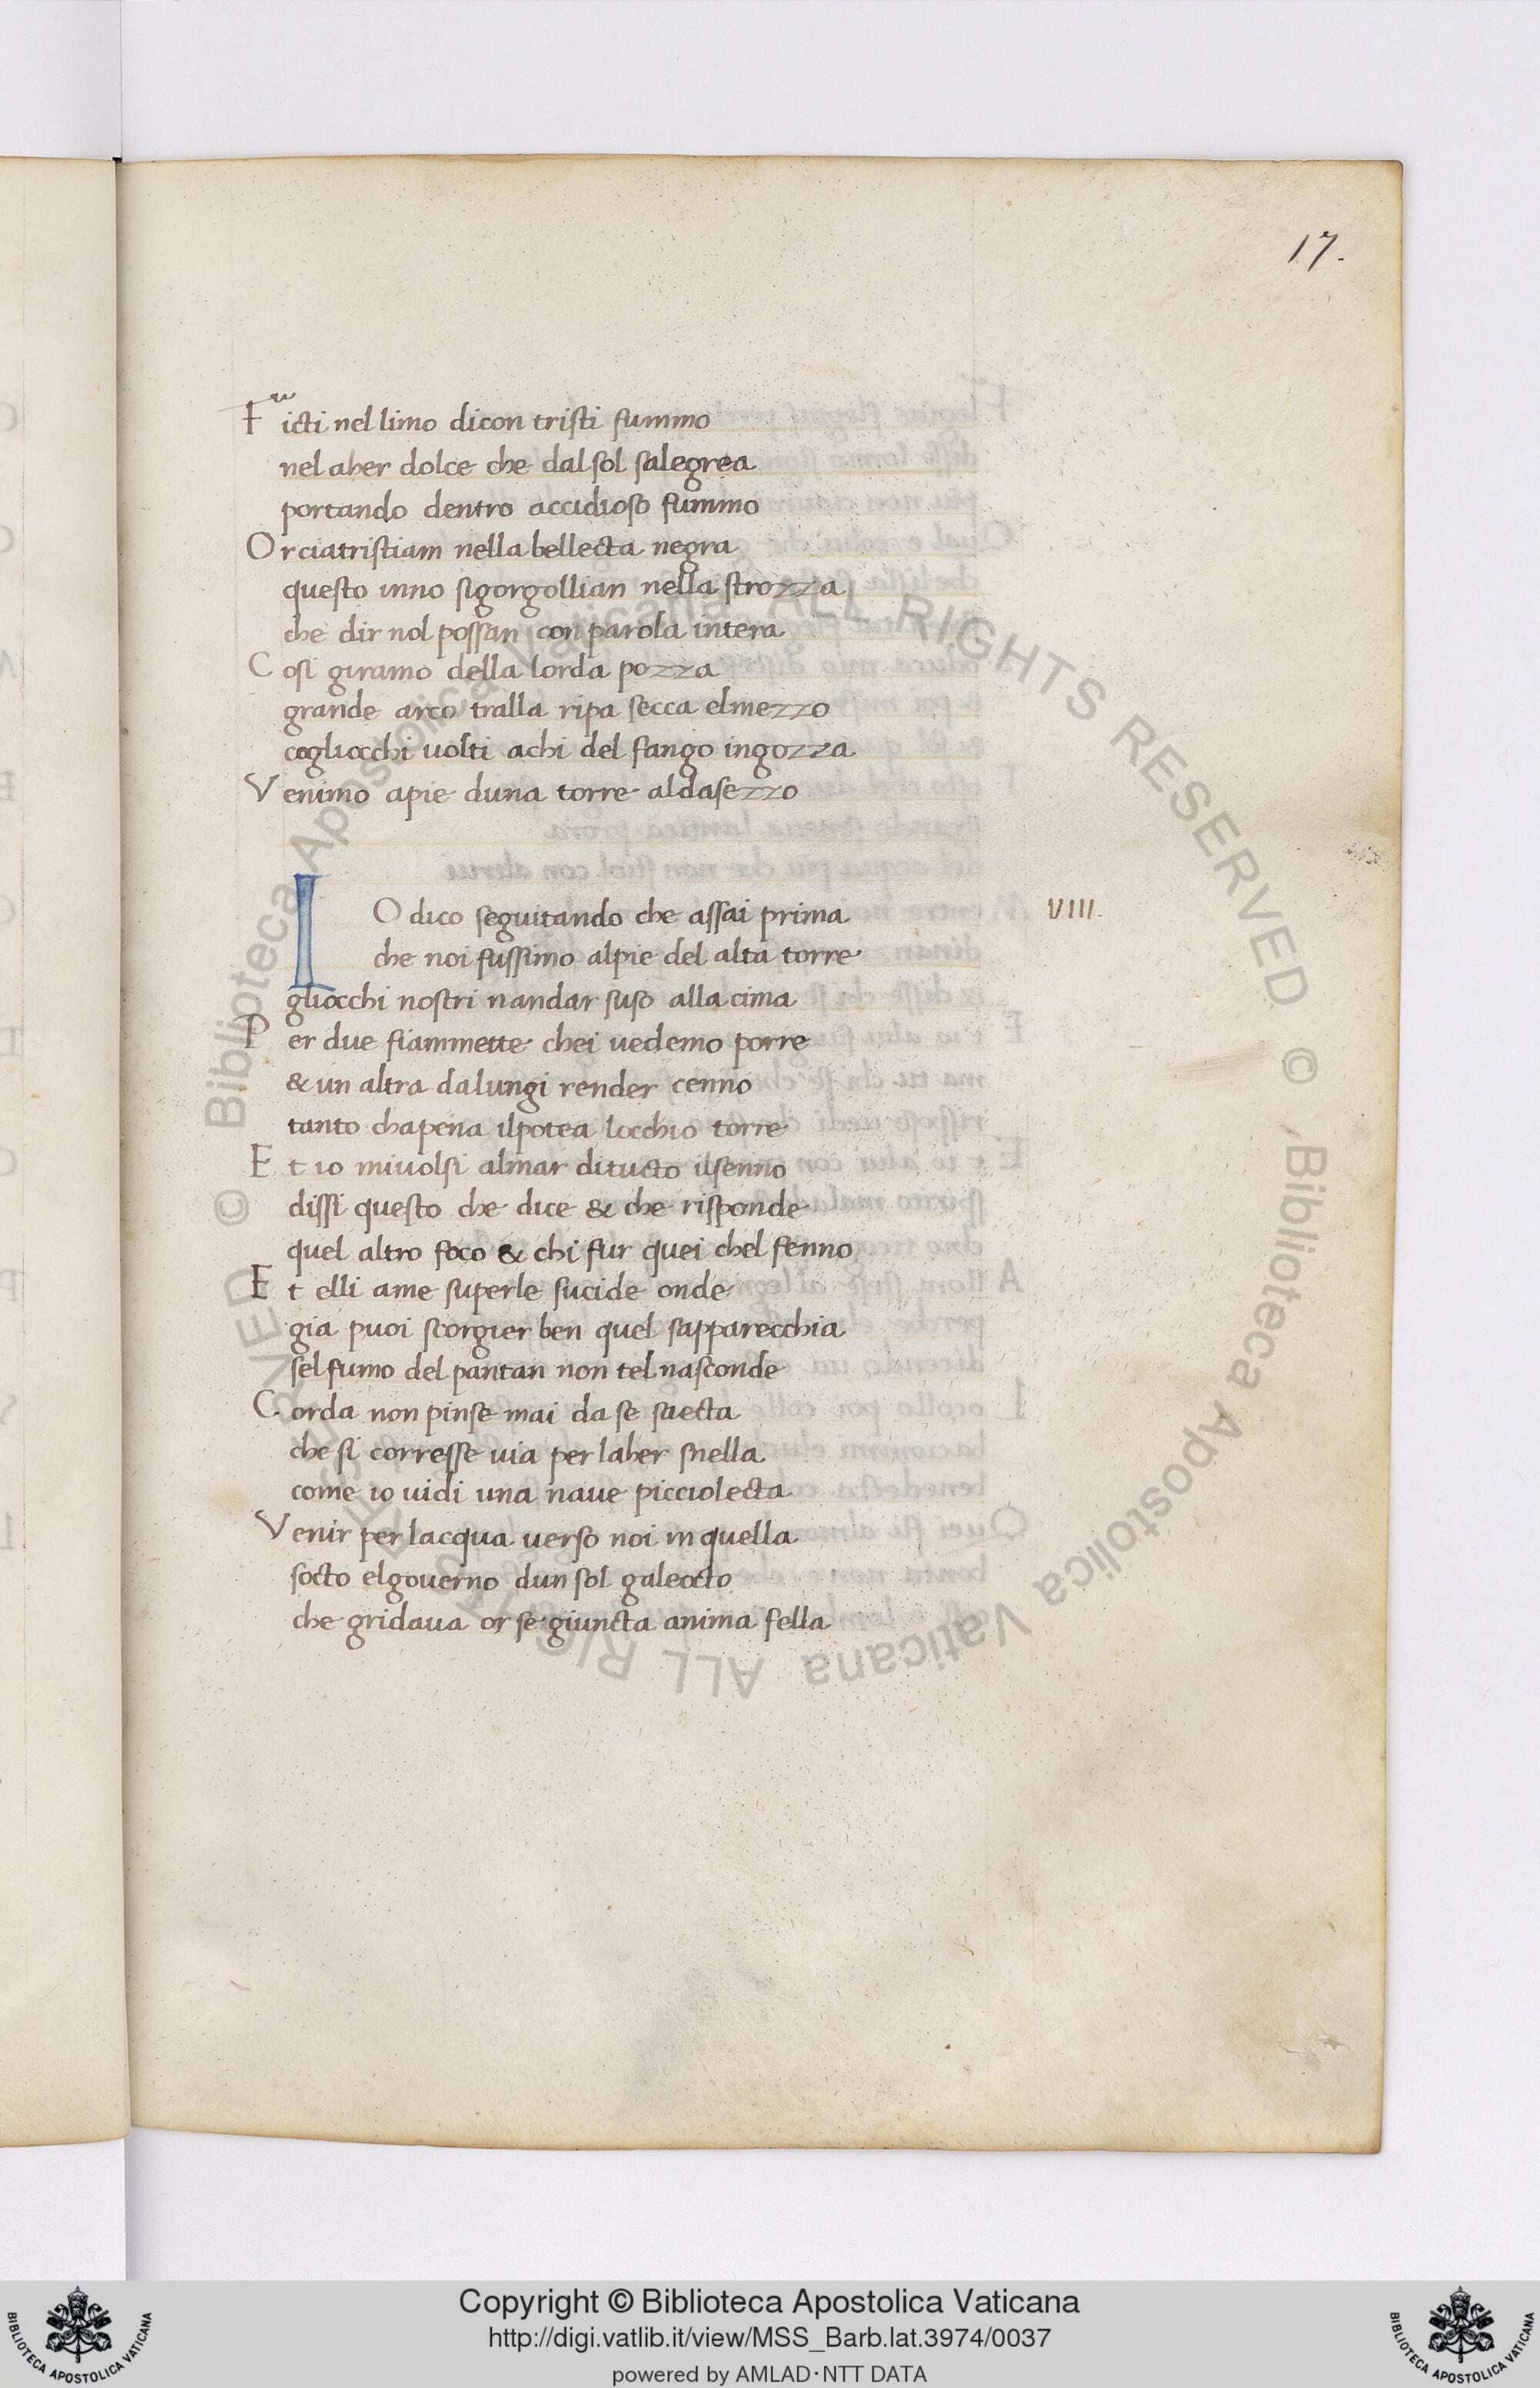 17.
Ficti nel limo dicon tristi fummo
nel aher dolce che dal sol salegrea
portando dentro accidioso fummo
Or ciatristiam nella bellecta negra
questo inno sigorgollian nella strozza
che dir nol possan con parola intera
Cosi giramo della lorda pozza
grande arco tralla ripa secca elmezzo
cogliocchi uolti achi del fango ingozza
Venimo apie duna torre aldasezzo
IO dico seguitando che assai prima
VIII.
che noi fussimo alpie del alta torre
gliocchi nostri nandar suso alla cima
Per due fiammette chei uedemo porre
& un altra dalungi render cenno
tanto chapena ilpotea locchio torre
Et io miuolsi almar ditucto ilsenno
dissi questo che dice & che risponde
quel altro foco & chi fur quei chel fenno
Et elli ame superle sucide onde
gia puoi scorgier ben quel sapparecchia
sel fumo del pantan non tel nasconde
Corda non pinse mai da se saecta
che si corresse uia per laher snella
come io uidi una naue picciolecta
Venir per lacqua uerso noi in quella
socto elgouerno dun sol galeocto
che gridaua or se giuncta anima fella
© Biblioteca Apostolica Vaticana ALL RIGHTS RESERVED © Biblioteca Apostolica Vaticana ALL RIGHTS RESERVED
BIBLIOTECA APOSTOLICA VATICANA
Copyright © Biblioteca Apostolica Vaticana
http://digi.vatlib.it/view/MSS_Barb.lat.3974/0037
powered by AMLAD·NTT DATA
BIBLIOTECA APOSTOLICA VATICANA